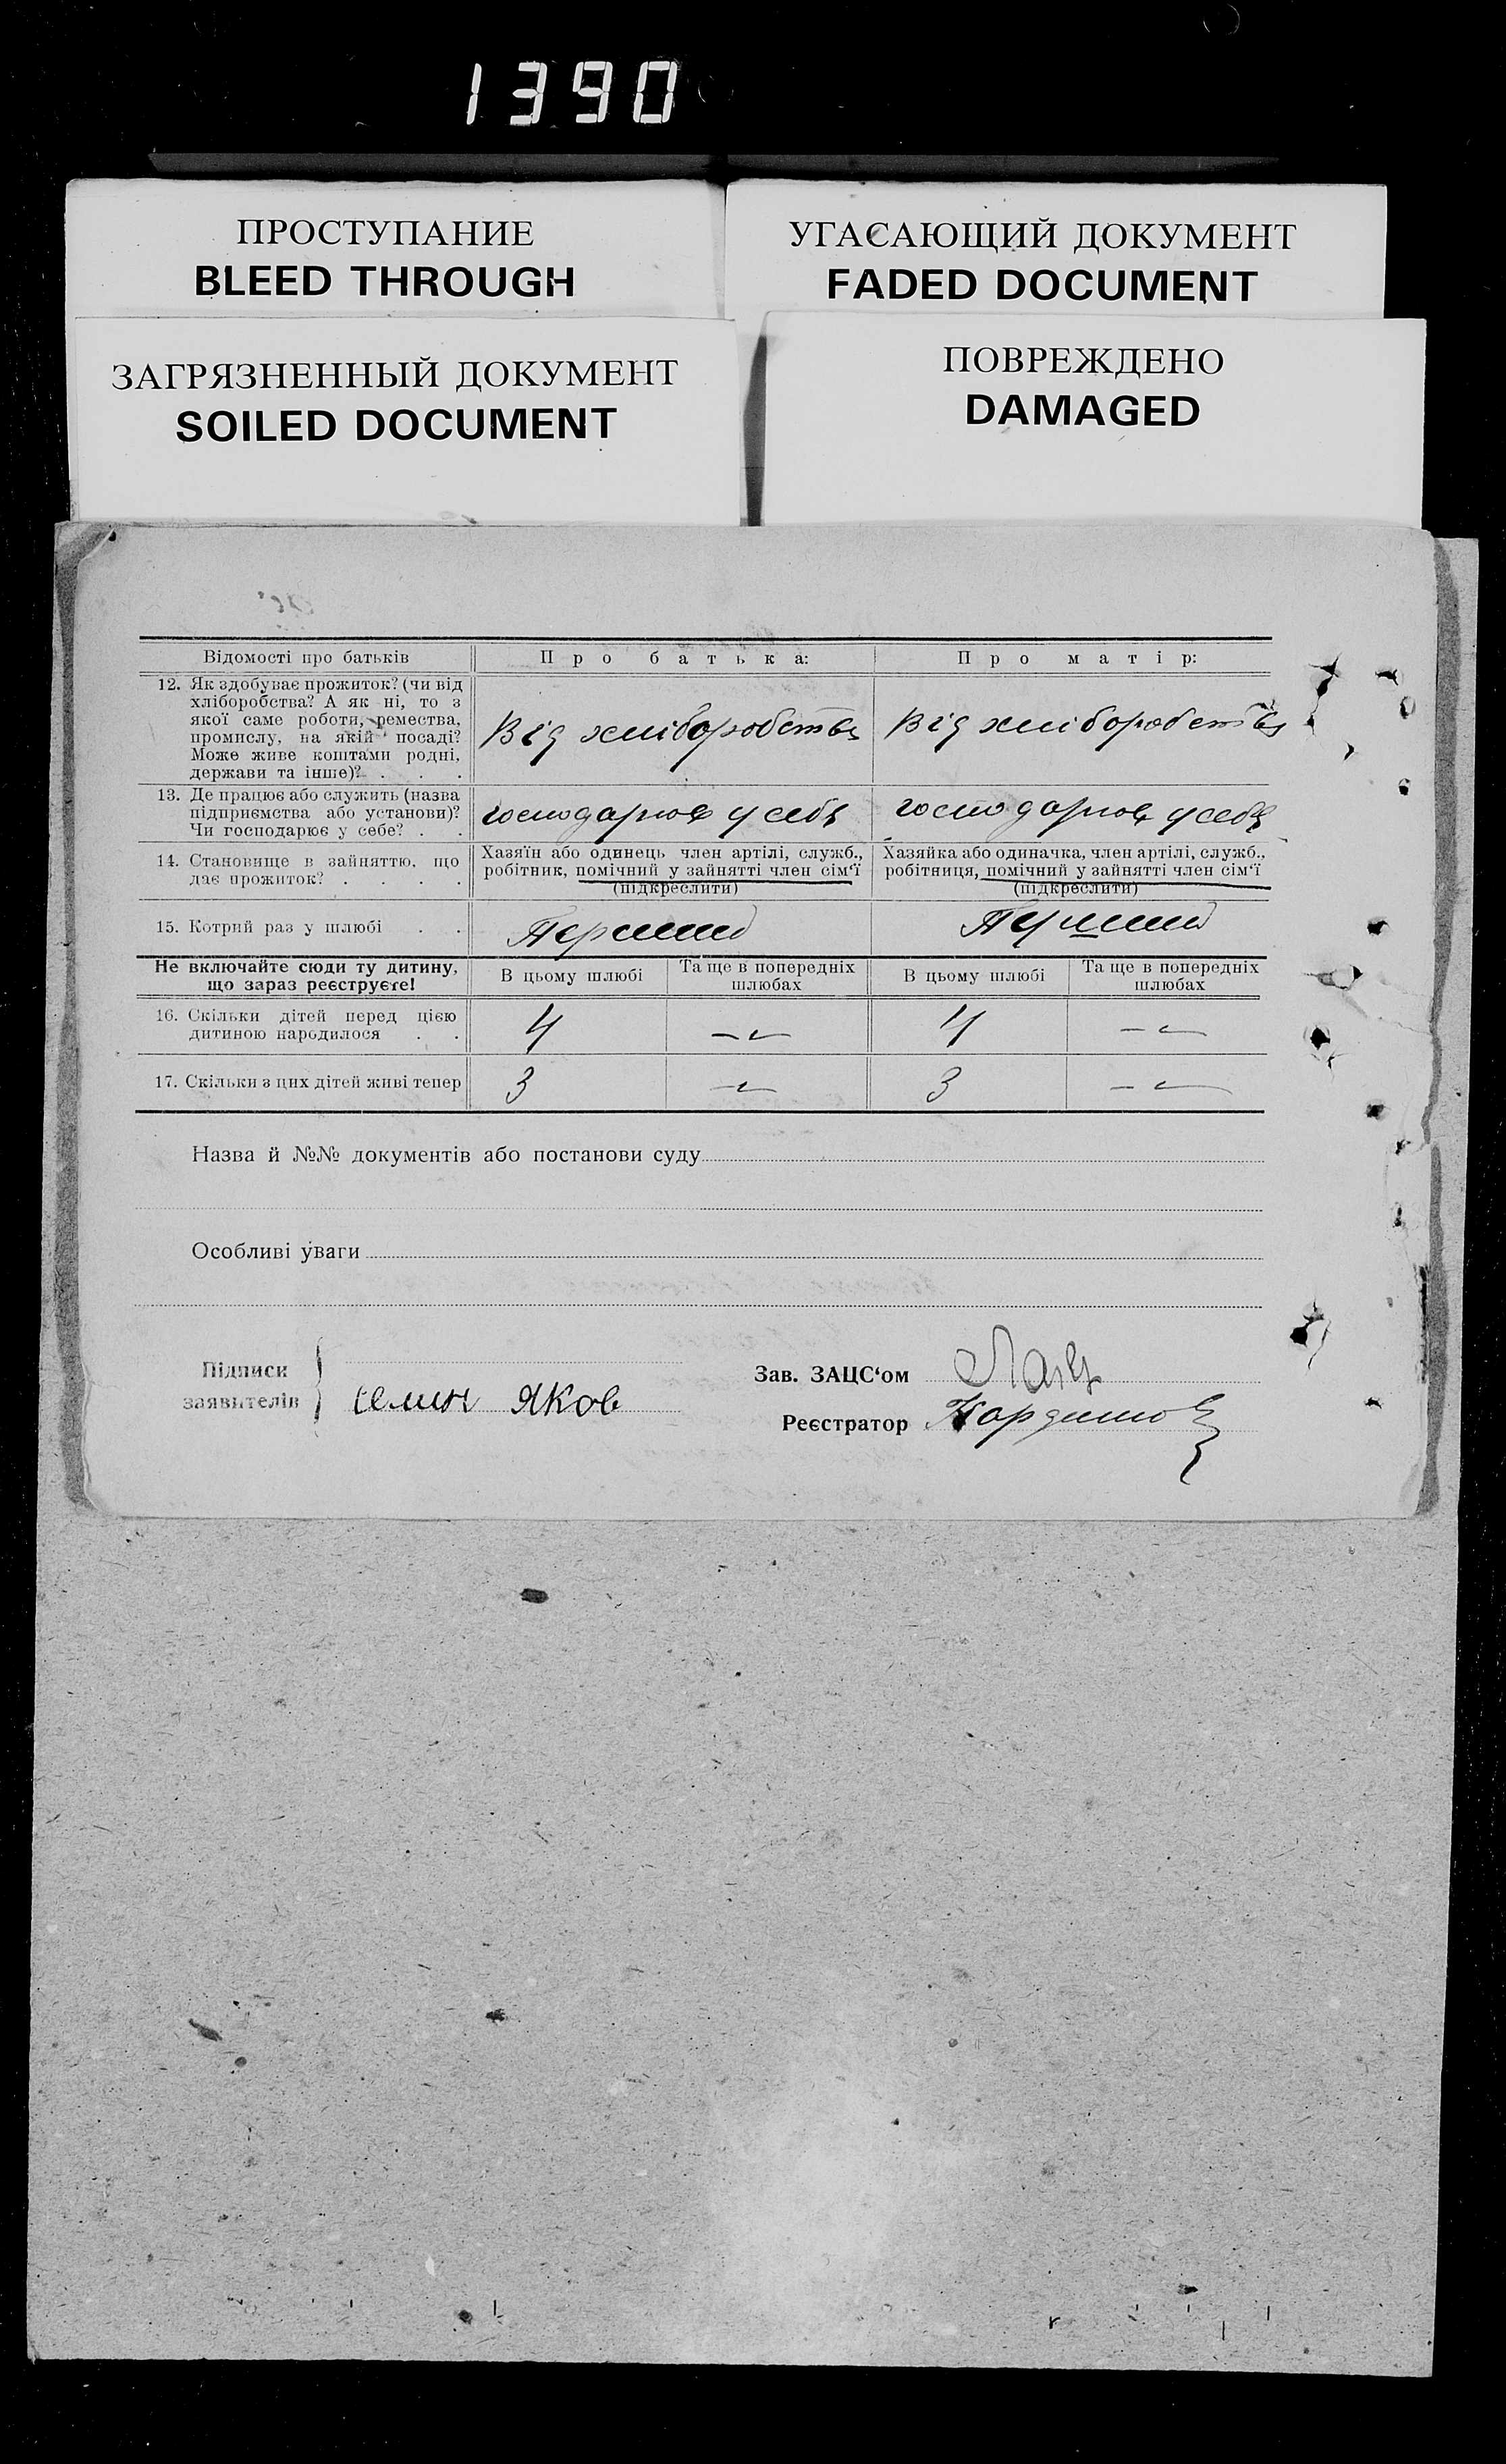 1390
ПРОСТУПАНИЕ
BLEED THROUGH
УГАСАЮЩИЙ ДОКУМЕНТ
FADED DOCUMENT
ЗАГРЯЗНЕННЫЙ ДОКУМЕНТ
SOILED DOCUMENT
ПОВРЕЖДЕНО
DAMAGED
Відомості про батьків
Про батька:
Про матір:
12. Як здобуває прожиток? (чи від
хліборобства? А як ні, то з
якої саме роботи, ремества,
промислу, на якій посаді?
Може живе коштами родні,
держави та інше)? . . .
Від хліборобства
Від хліборобства
13. Де працює або служить (назва
підприємства або установи)?
Чи господарює у себе? . .
господарює у себе
господарює у себе
14. Становище в зайняттю, що
дає прожиток? . . . .
Хазяїн або одинець член артілі, служб.,
робітник, помічний у зайнятті член сім'ї
(підкреслити)
Хазяйка або одиначка, член артілі, служб.,
робітниця, помічний у зайнятті член сім'ї
(підкреслити)
15. Котрий раз у шлюбі . .
Перший
Перший
Не включайте сюди ту дитину,
що зараз реєструєте!
В цьому шлюбі
Та ще в попередніх
шлюбах
В цьому шлюбі
Та ще в попередніх
шлюбах
16. Скільки дітей перед цією
дитиною народилося . .
4
—
4
—
17. Скільки з цих дітей живі тепер
3
—
3
—
Назва й №№ документів або постанови суду
Особливі уваги
Підписи
заявителів
Яков
Зав. ЗАЦС'ом
Реєстратор